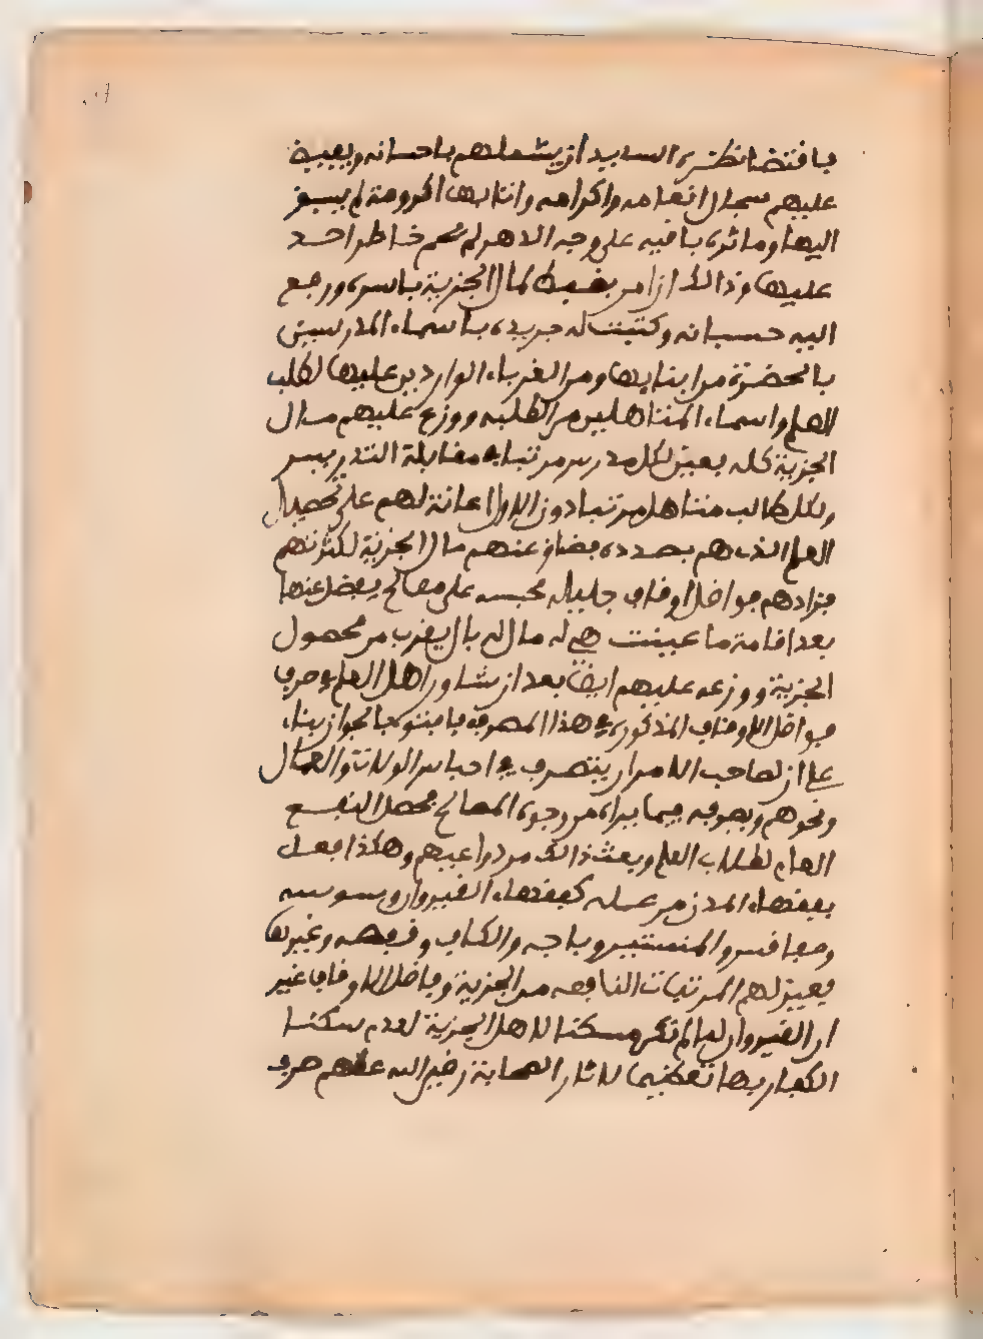 فاقتضا نظره السديد ان يشملهم باحسانه ويفيض
عليهم سجال انعامه واكرامه واثابها اكرومة لم يسبق
اليها وماثره باقيه على وجه الدهر لم يحم خاطر احد
عليها وذالك ان امر بضبط مال الجزية باسره ورجع
اليه حسبانه وكتبت له جريده باسماء المدرسين
بالحضرة من ابنايها ومن الغرباء الواردين عليها لطلب
العلم واسماء المتاهلين من الطلبه ووزع عليهم مال
الجزية كله فعين لكل مدرس مرتبا في مقابلة التدريس
ولكل طالب متاهل مرتبا دون الاول اعانة لهم على تحصيل
العلم الذى هم بصدده فضاق عنهم مال الجزية لكثرتهم
فزادهم فواضل اوقاف جليله محبسه على مصالح يفضل عنها
بعد اقامة ما عينت هي له مال له بال يقرب من محصول
الجزية ووزعه عليهم ايضا بعد ان شاور اهل العلم في صرف
فواضل الاوقاف المذكوره في هذا المصرف فافتوه بالجواز بناء
على ان لصاحب الامر ان يتصرف في احباس الولات والعمال
ونحوهم ويصرفه فيما يراه من وجوه المصالح فحصل النفع
العام لطلاب العلم وبعث ذالك من دواعيهم وهكذا فعل
بفقهاء المدن من عمله كفقهاء القيروان وسوسه
وصفاقس والمنستير وباجه والكاف وقفصه وغيرها
فعين لهم المرتبات النافعه من الجزية وفاضل الاوقاف غير
ان القيروان لما لم تكن مسكنا لاهل الجزية لعدم سكنا
الكفار بها تعظيما لاثار الصحابة رضي الله عنهم صرف